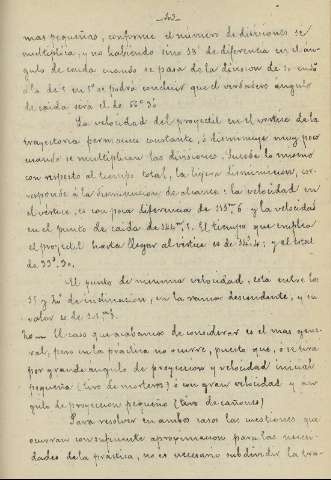 43
mas pequeñas, conforme el número de divisiones se
multiplica, y no habiendo sino 33' de diferencia en el án-
gulo de caida cuando se pasa de la division de en
á la de 5 en 5º se podrá concluir que el verdadero ángulo
de caida será el de 56º
La velocidad del proyectil en el vértice de la
trayectoria permanece constante, ó disminuye muy poco
cuando se multiplican las divisiones. Sucede lo mismo
con respecto al tiempo total, la ligera disminucion, cor-
responde á la disminucion de alcance: la velocidad en
el vértice, es con poca diferencia de y la velocidad
en el punto de caida de El tiempo que emplea
el proyectil hasta llegar al vértice es de y al total
de
El punto de minima velocidad, está entre los
35 y de inclinacion, en la rama descendente, y su
valor es de
El caso que acabamos de considerar es el mas gene-
ral, pero en la práctica no ocurre, puesto que, ó se tira
por grande angulo de proyeccion y velocidad inicial
pequeña (tiro de morteros) ó con gran velocidad y an-
gulo de proyeccion pequeño (tiro de cañones)
Para resolver en ambos casos las cuestiones que
ocurran con suficiente aproximacion para las necesi-
dades de la práctica, no es necesario subdividir la tra-